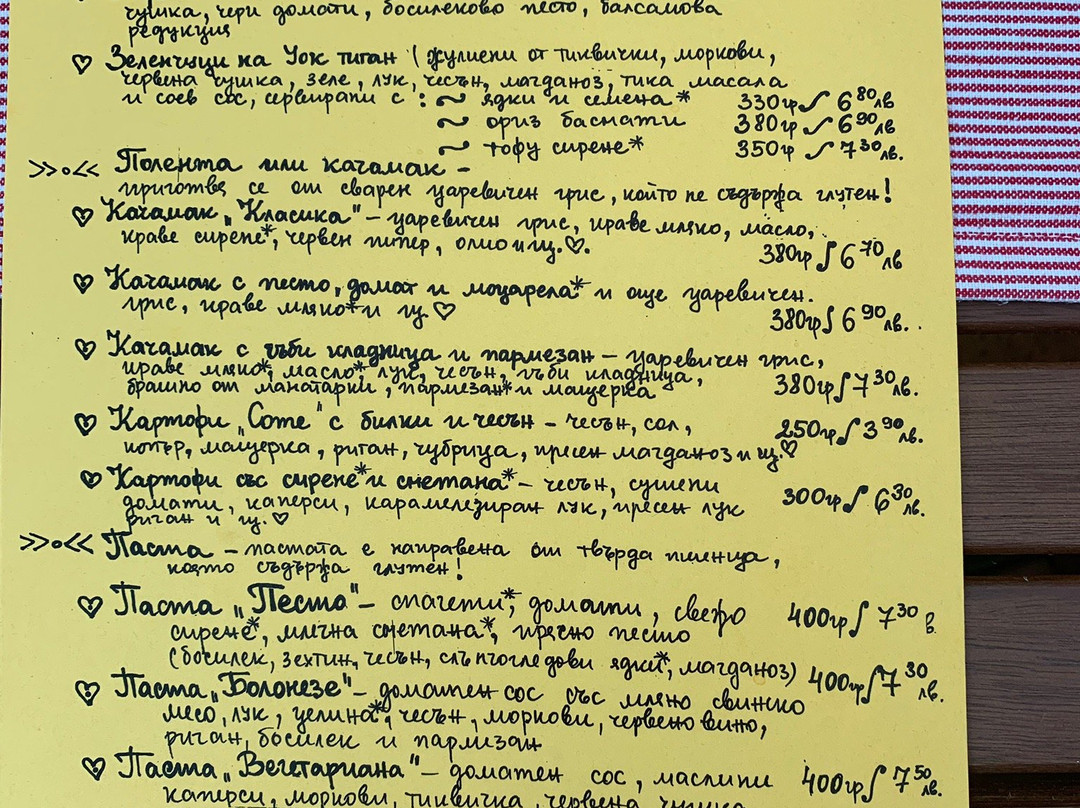 чушка, чери домати, босилеково песто, балсамова
редукция
♡ Зеленчуци на Уок тиган (жулиени от тиквички, моркови,
червена чушка, зеле, лук, чесън, магданоз, тика масала
и соев сос, сервирани с : ~ ядки и семена* 330гр ∫ 6 80 лв
~ ориз басмати 380гр ∫ 6 90 лв
~ тофу сирене* 350гр ∫ 7 30 лв.
>>∘<< Полента или качамак -
приготвя се от сварен царевичен грис, който не съдържа глутен!
♡ Качамак „Класика" - царевичен грис, краве мляко, масло,
краве сирене*, червен пипер, олио и щ.♡. 380гр ∫ 6 70 лв
♡ Качамак с песто, домат и моцарела* и още царевичен.
грис, краве мляко* и щ.♡ 380гр ∫ 6 90 лв.
♡ Качамак с гъби кладница и пармезан - царевичен грис,
краве мляко*, масло*, лук, чесън, гъби кладница,
брашно от манатарки, пармезан* и мащерка 380гр ∫ 7 30 лв.
♡ Картофи „Соте" с билки и чесън - чесън, сол, 250гр ∫ 3 90 лв.
копър, мащерка, риган, чубрица, пресен магданоз и щ.♡
♡ Картофи със сирене* и сметана* - чесън, сушени 300гр ∫ 6 30 лв.
домати, каперси, карамелезиран лук, пресен лук
риган и щ.♡
>>∘<< Паста - пастата е направена от твърда пшеница,
която съдържа глутен!
♡ Паста „Песто" - спагети*, домати, свежо 400гр ∫ 7 30 в.
сирене*, млечна сметана*, прясно песто
(босилек, зехтин, чесън, слънчогледови ядки*, магданоз)
♡ Паста „Болонезе" - доматен сос със мляно свинско 400гр ∫ 7 30 лв.
месо, лук, целина*, чесън, моркови, червено вино,
риган, босилек и пармезан
♡ Паста „Вегетариана" - доматен сос, маслини 400гр ∫ 7 50 лв.
каперси, моркови, тиквичка, червена чушка